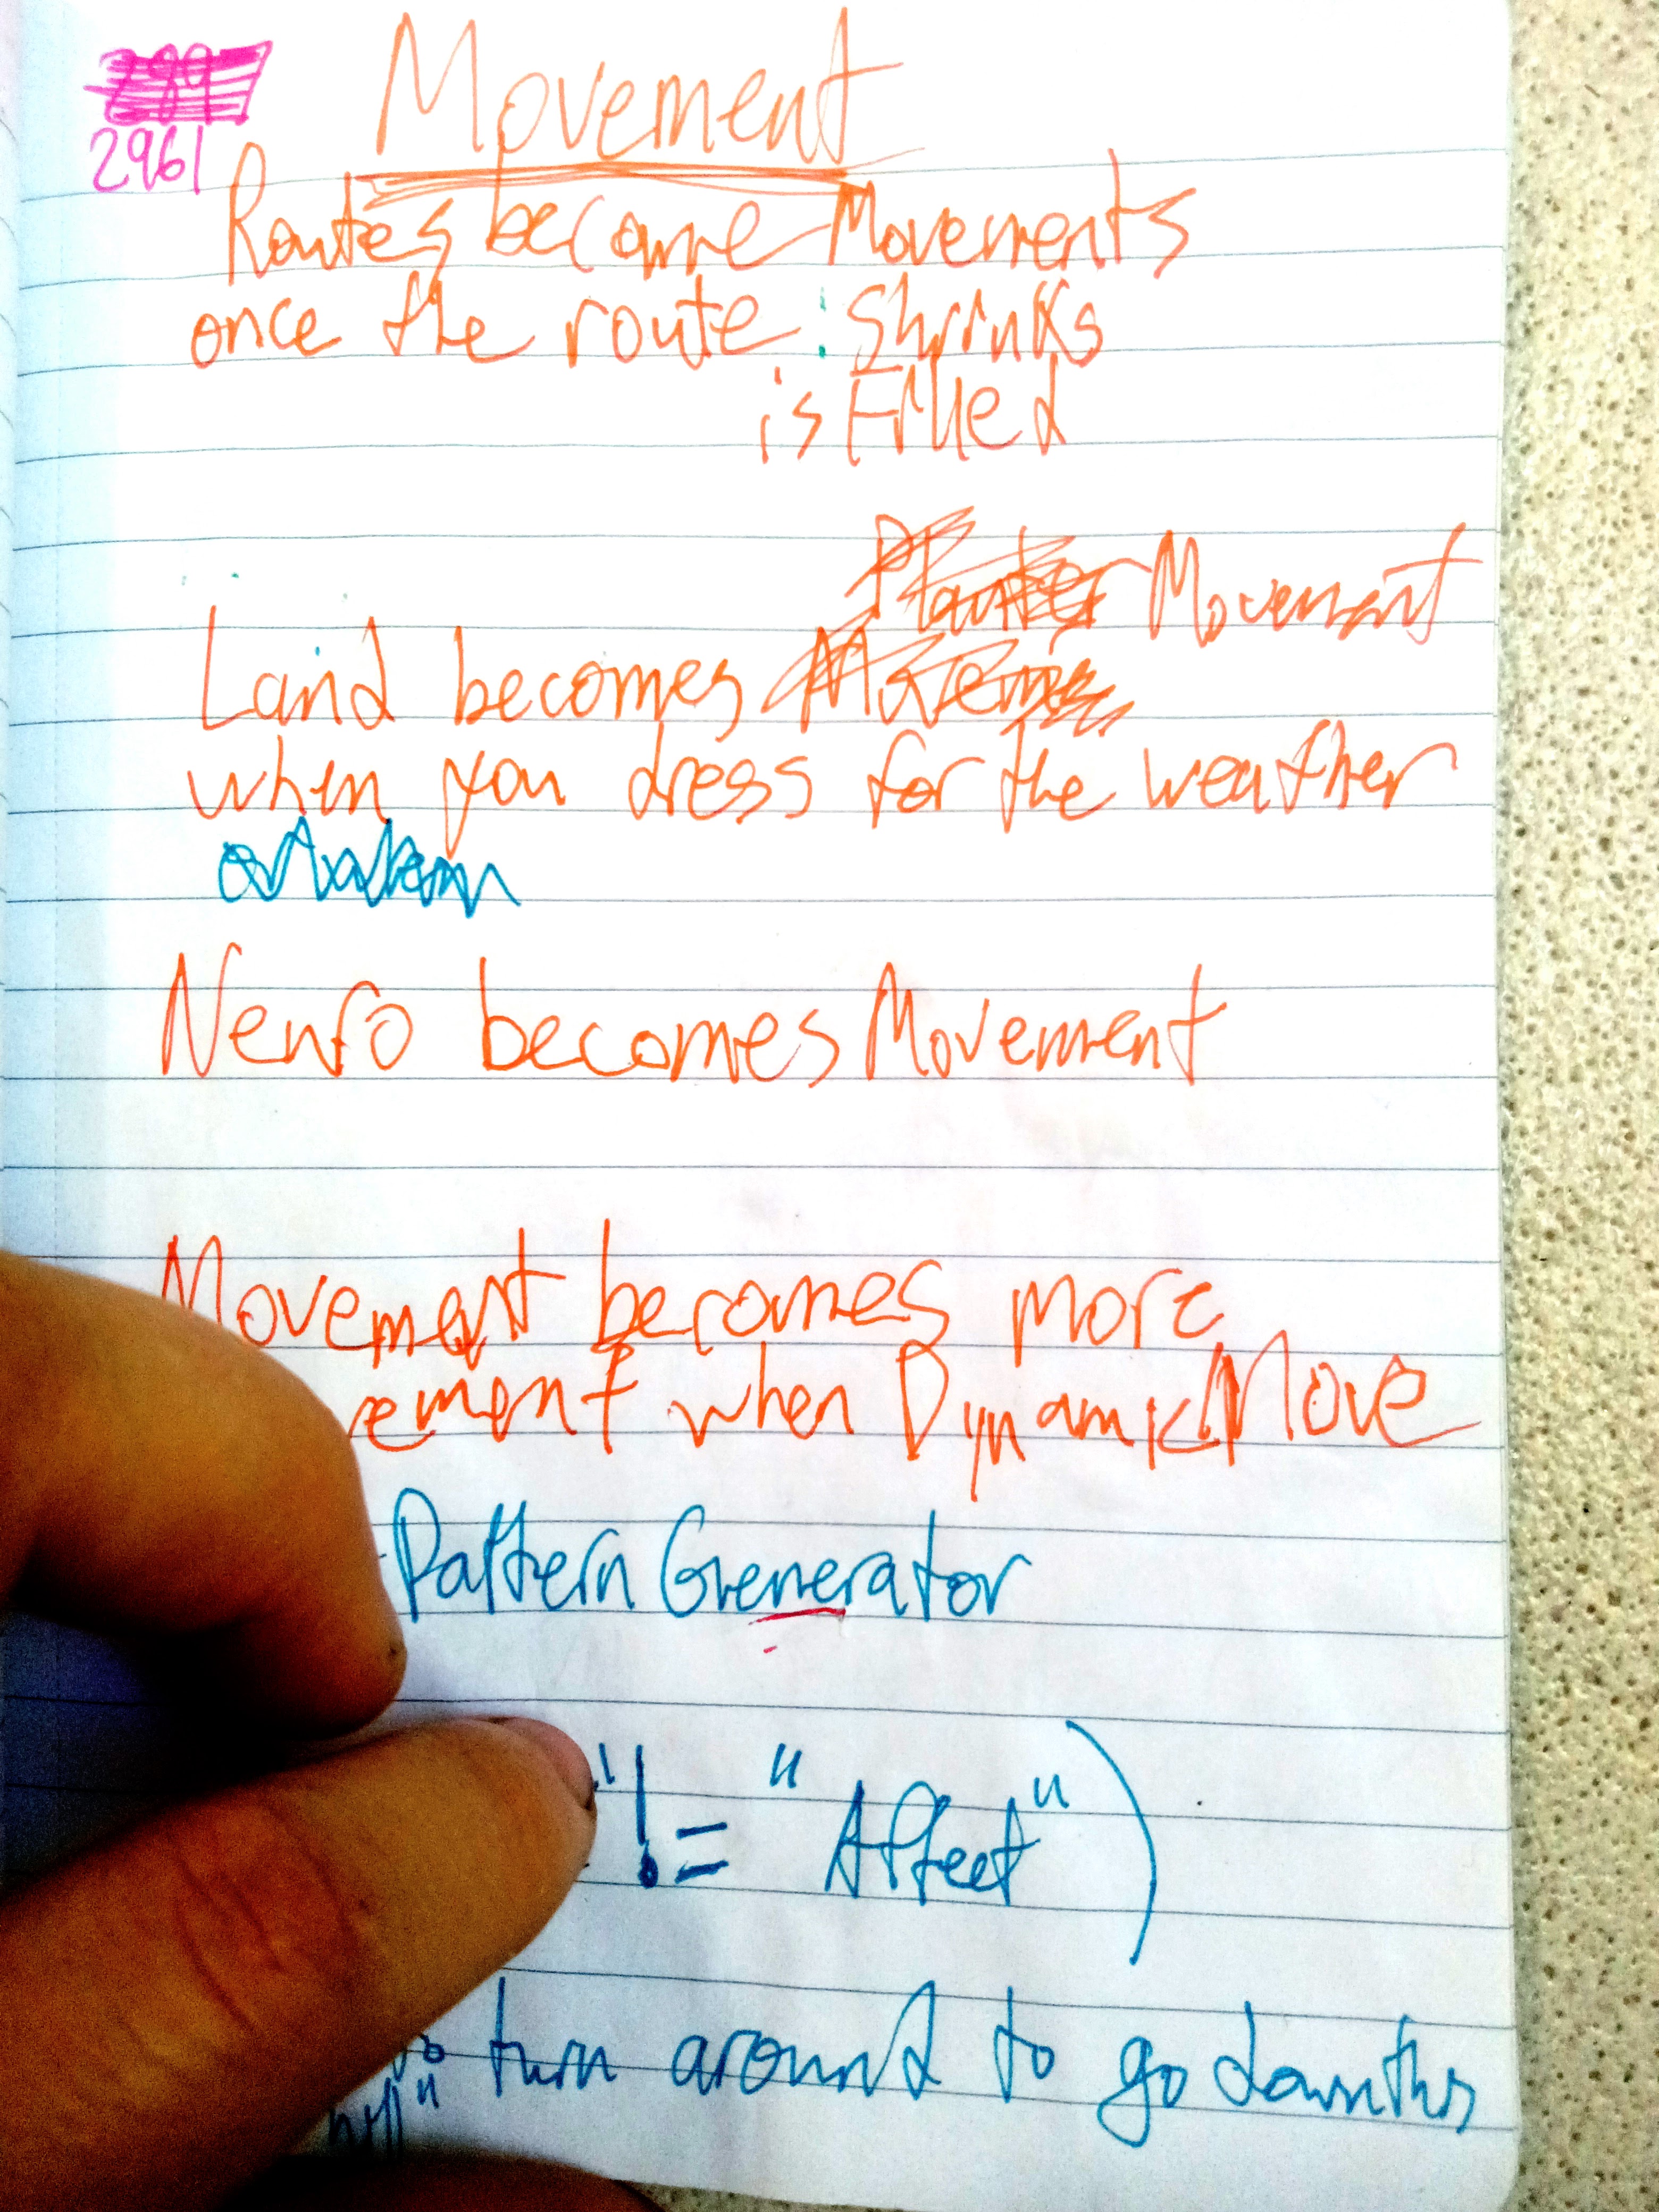 2961
Movement
Routes become Movements
once the route: Shrinks
is Filled
Movement
Land becomes
when you dress for the weather
Neuro becomes Movement
Movement becomes more
ement when Dynamic Move
Pattern Generator
" != "Affect")
turn around to go down this
hill"